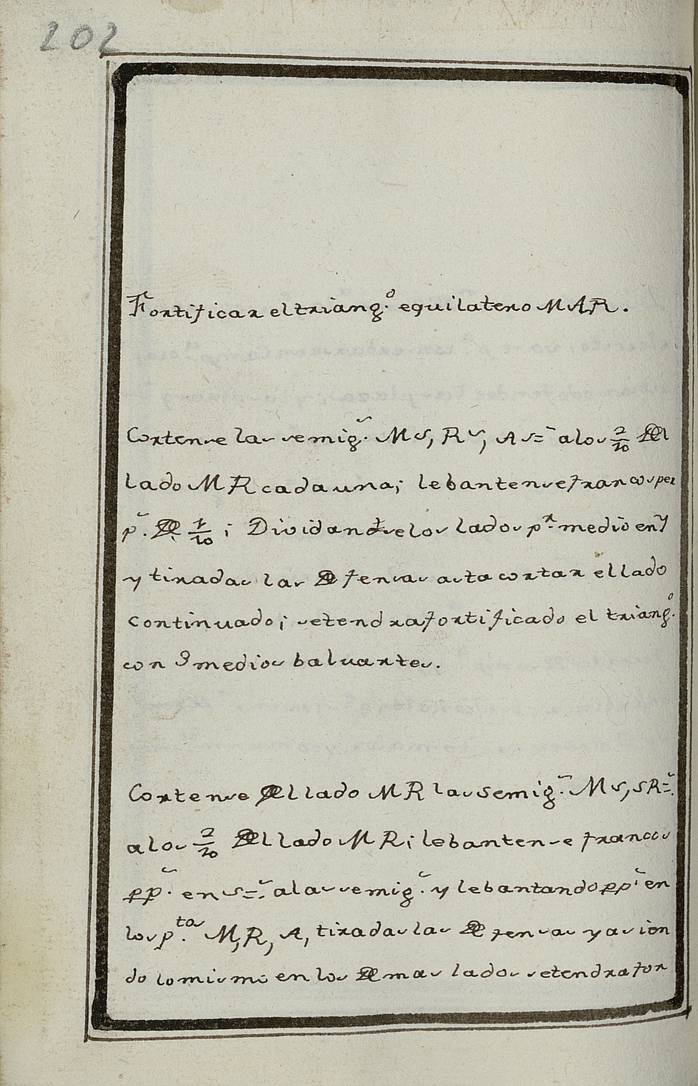 202
Fortificar el triang.º equilatero MAR.
Cortense las semig.s Ms, Rs, As= a los 2/20 Del
lado MR cada una; lebantense francos per
p.s De 1/10; Dividanse los lados p.r medio en
y tiradas las Defensas asta cortar el lado
continuado; se tendra fortificado el triang.º
con 3 medios baluartes.
Cortense Del lado MR las semig.s Ms, sR=
a los 2/20 Del lado MR; lebantense francos
pp.s en s= a las semig.s y lebantando pp.s en
los p.tos M, R, A, tiradas las Defensas y asien
do lo mismo en los Demas lados se tendra for